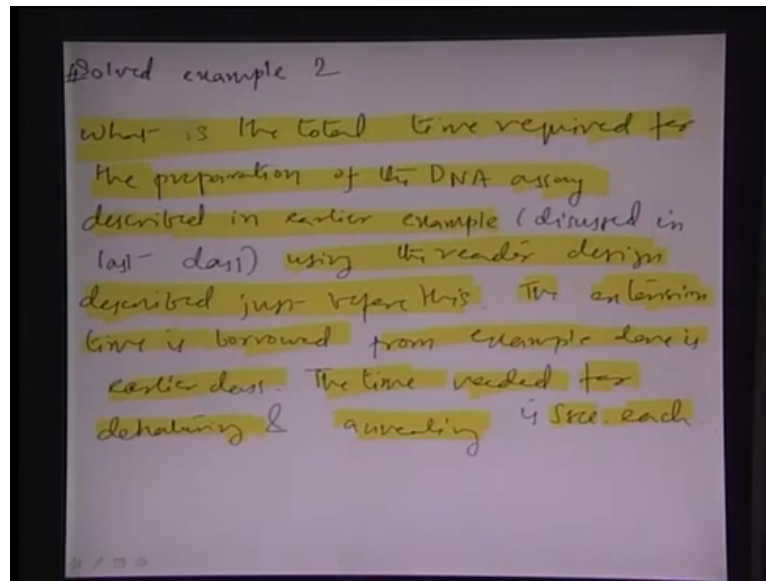 Solved example 2
What is the total time required for
the preparation of the DNA assay
described in earlier example (discussed in
last class) using the reader design
described just before this. The extension
time is borrowed from example done is
earlier class. The time needed for
denaturing & annealing is 5sec. each